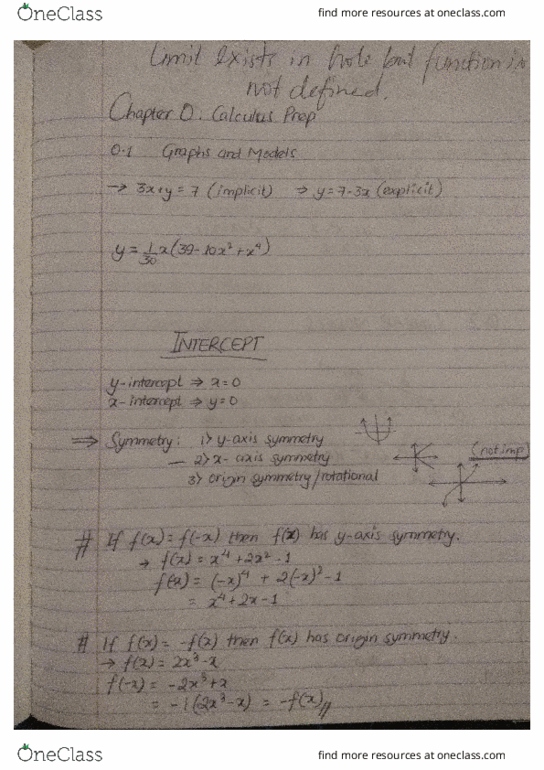 OneClass
find more resources at oneclass.com
Limit exists in hole but function is
not defined.
Chapter 0. Calculus Prep
0.1 Graphs and Models
→ 3x+y = 7 (implicit) ⇒ y = 7-3x (explicit)
y = 1/30 x(39-10x² + x⁴)
INTERCEPT
y-intercept ⇒ x=0
x-intercept ⇒ y=0
⇒ Symmetry: 1) y-axis symmetry
— 2) x-axis symmetry (not imp)
3) origin symmetry/rotational
# If f(x) = f(-x) then f(x) has y-axis symmetry.
→ f(x) = x⁴ + 2x² - 1
f(-x) = (-x)⁴ + 2(-x)² - 1
= x⁴ + 2x - 1
# If f(x) = -f(x) then f(x) has origin symmetry.
→ f(x) = 2x³ - x
f(-x) = -2x³ + x
= -1(2x³ - x) = -f(x)//
OneClass
find more resources at oneclass.com